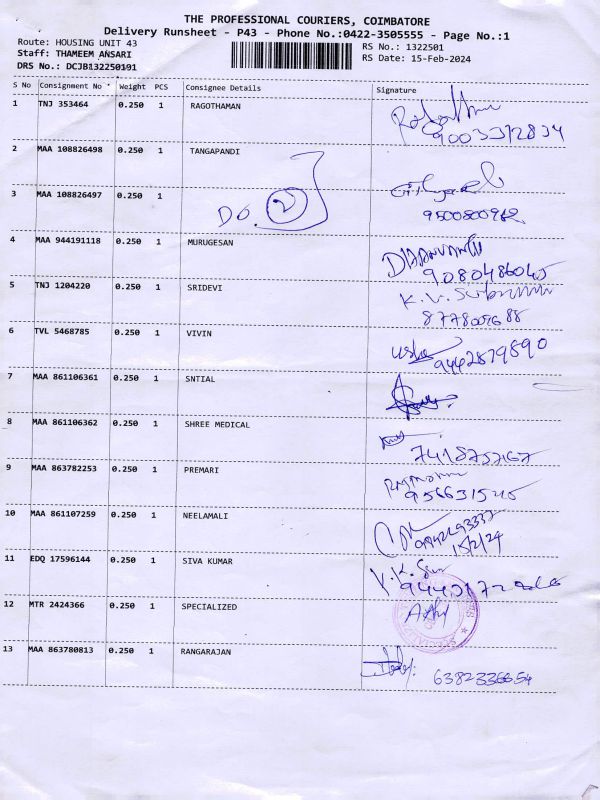 THE PROFESSIONAL COURIERS, COIMBATORE
Delivery Runsheet - P43 - Phone No.:0422-3505555 - Page No.:1
Route: HOUSING UNIT 43
Staff: THAMEEM ANSARI
DRS No.: DCJB132250191
RS No.: 1322501
RS Date: 15-Feb-2024
S No Consignment No Weight PCS Consignee Details Signature
1 TNJ 353464 0.250 1 RAGOTHAMAN
9003312834
2 MAA 108826498 0.250 1 TANGAPANDI
3 MAA 108826497 0.250 1
DO. 2
4 MAA 944191118 0.250 1 MURUGESAN
5 TNJ 1204220 0.250 1 SRIDEVI
6 TVL 5468785 0.250 1 VIVIN
usha
9442879890
7 MAA 861106361 0.250 1 SNTIAL
8 MAA 861106362 0.250 1 SHREE MEDICAL
9 MAA 863782253 0.250 1 PREMARI
10 MAA 861107259 0.250 1 NEELAMALI
15/2/24
11 EDQ 17596144 0.250 1 SIVA KUMAR
12 MTR 2424366 0.250 1 SPECIALIZED
13 MAA 863780813 0.250 1 RANGARAJAN
6382336654